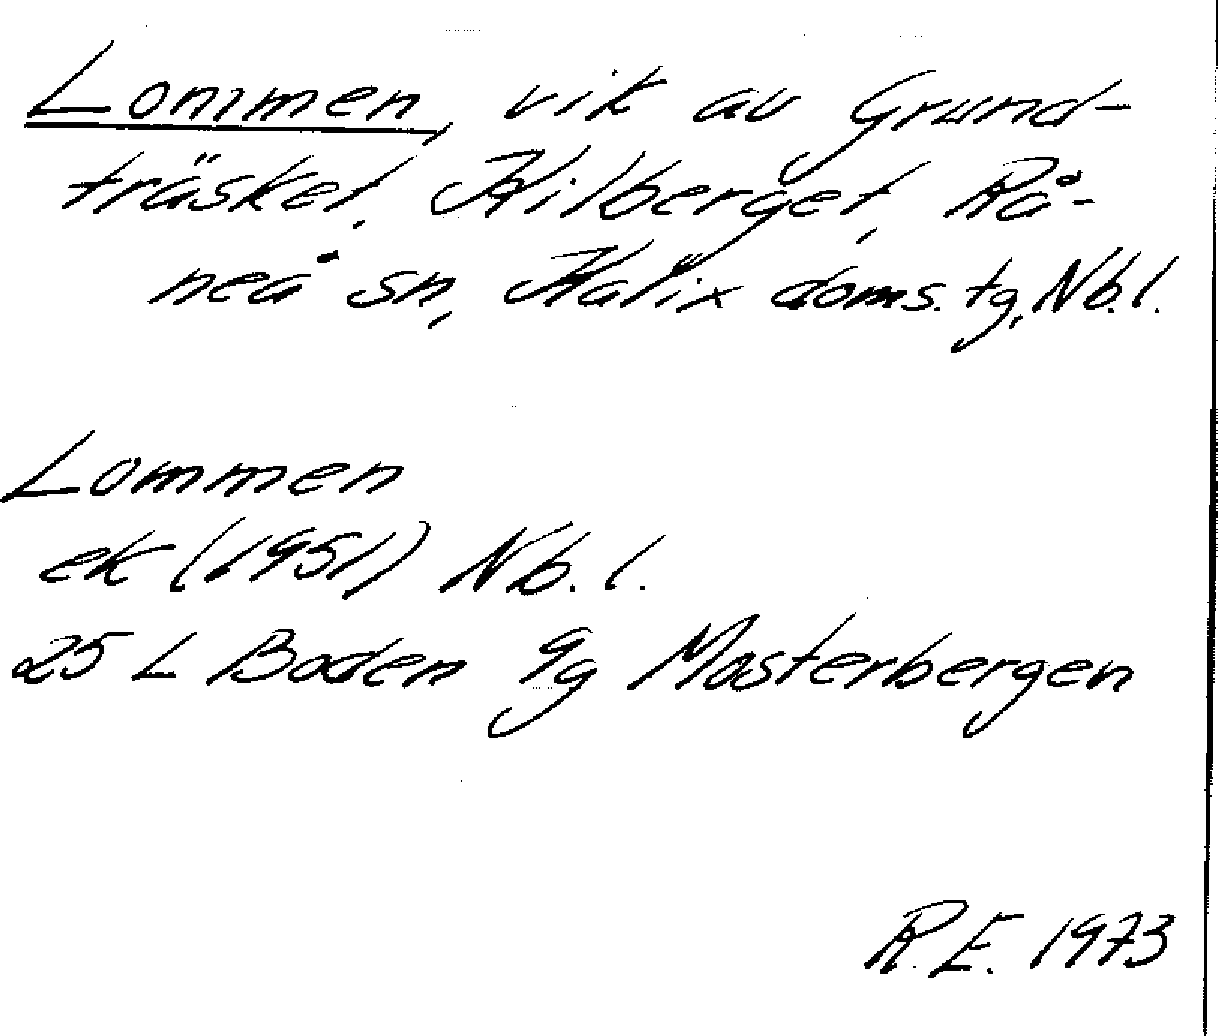 Lommen, vik av Grund-
träsket, Hilberget, Rå-
neå sn, Kalix doms. tg, Nb.l.
Lommen
ek (1951) Nb. l.
25 L Boden 9g Mosterbergen
R.E. 1973